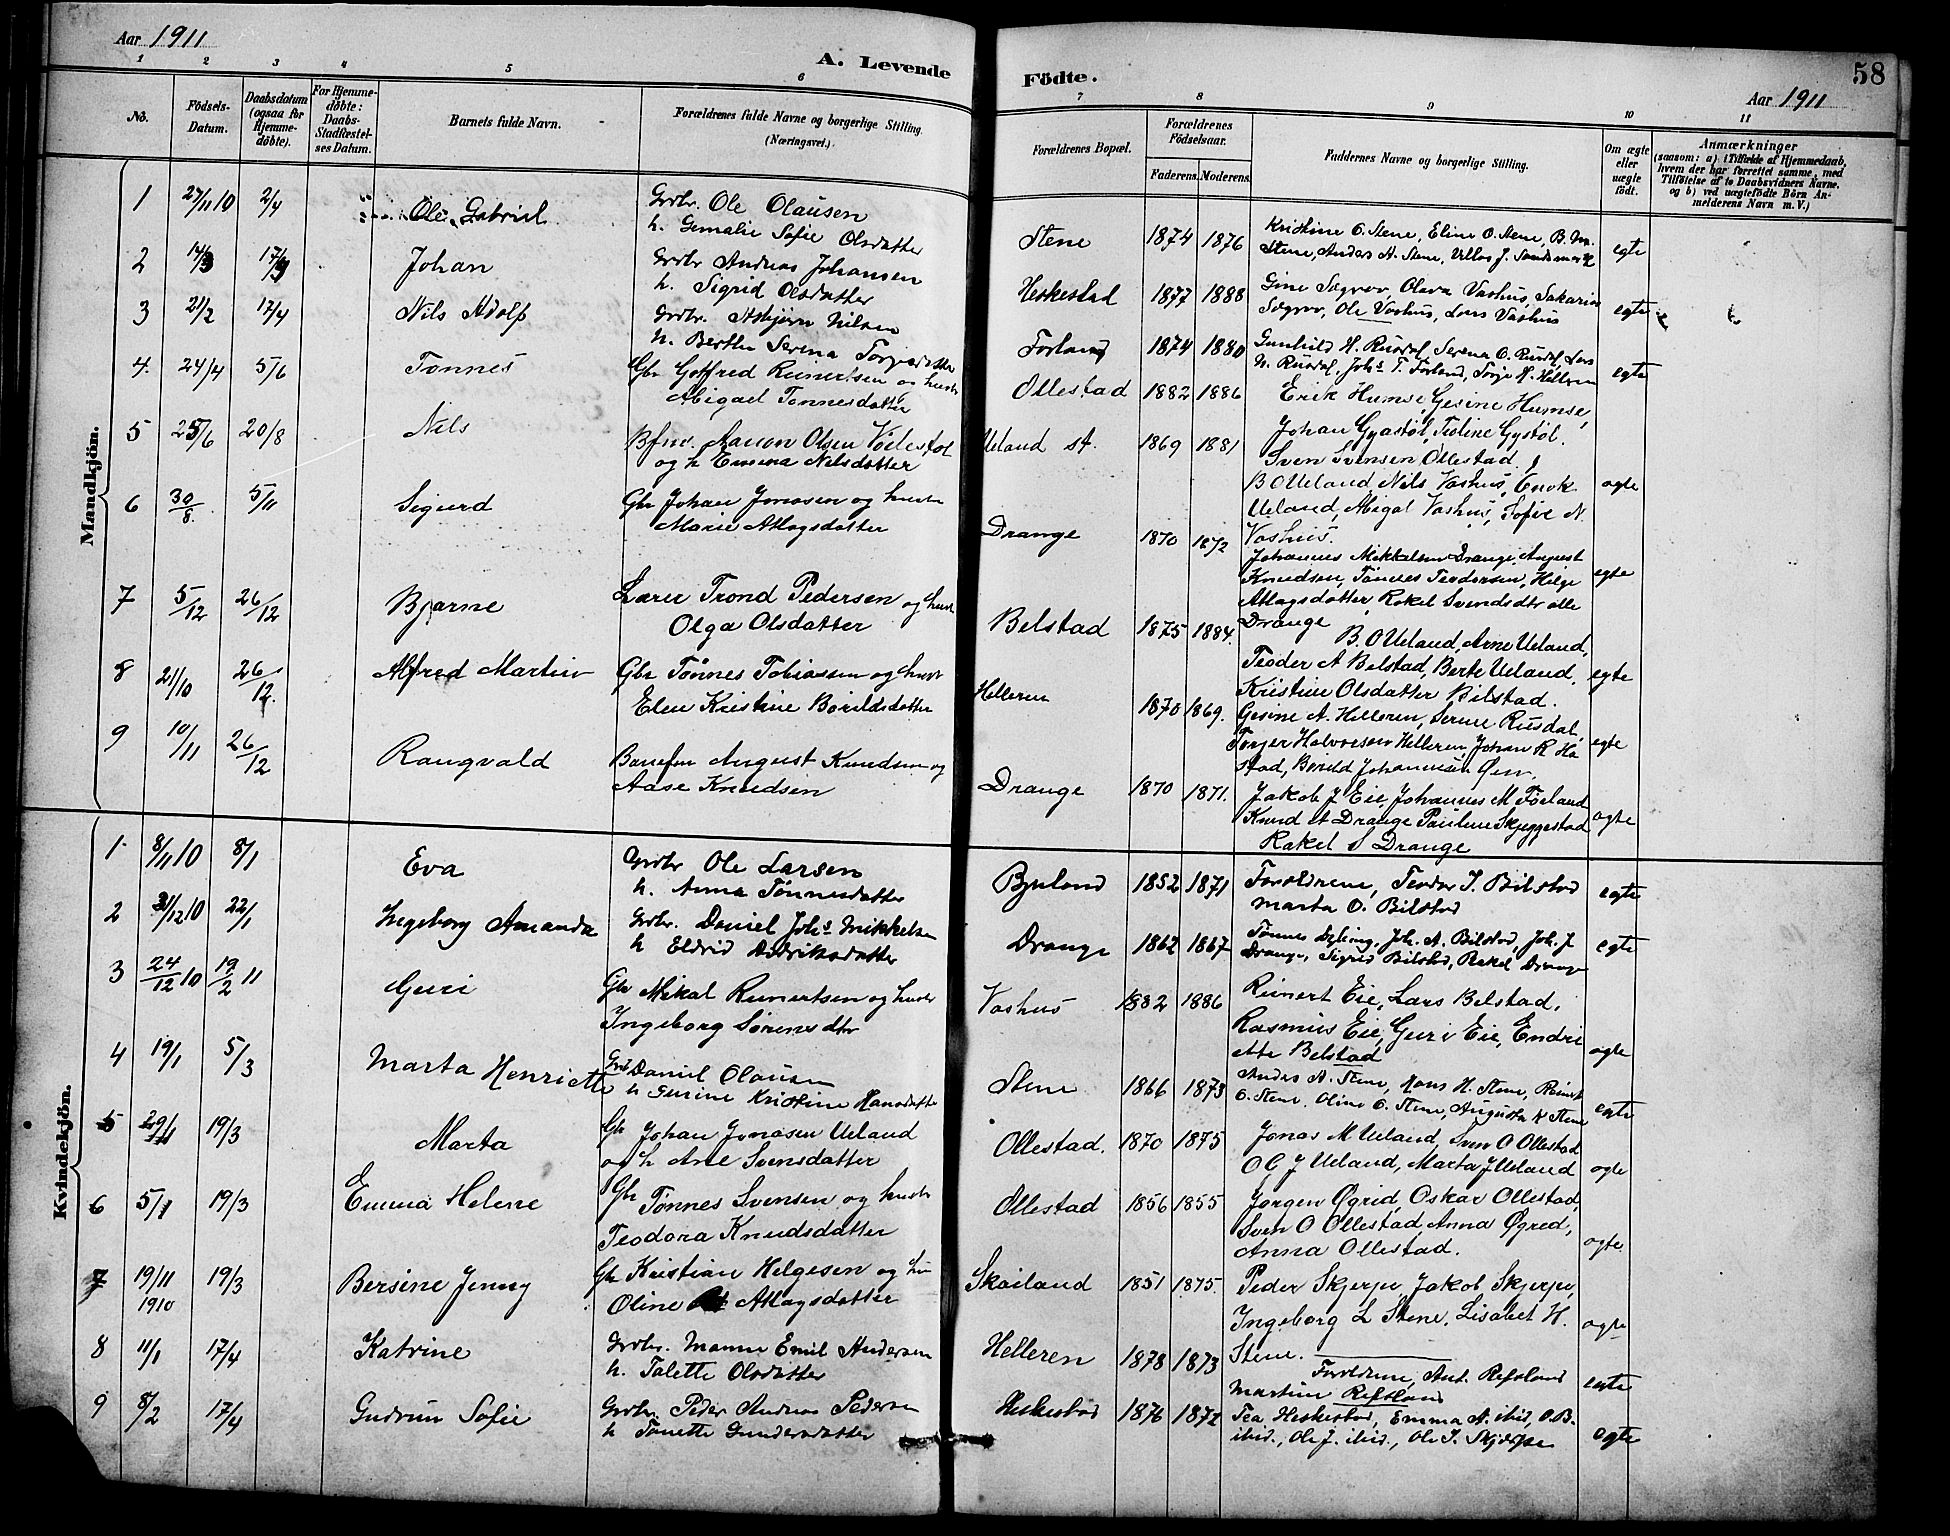 Aar 1911
A. Levende
Födte.
58
Aar 1911
1 2 3 4 5 6 7 8 9 10 11
No.
Födsels-
Datum.
Daabsdatum
(ogsaa for
Hjemme-
döbte).
For Hjemme-
döbte:
Daabs-
Stadfæstel-
ses Datum.
Barnets fulde Navn.
Forældrenes fulde Navne og borgerlige Stilling.
(Næringsvei.)
Forældrenes Bopæl.
Forældrenes
Födselsaar.
Faderens. Moderens.
Faddernes Navne og borgerlige Stilling.
Om ægte
eller
uægte
födt.
Anmærkninger
(saasom: a) i Tilfælde af Hjemmedaab,
hvem der har forrettet samme, med
Tilföielse af to Daabsvidners Navne,
og b) ved uægtefödte Börn An-
melderens Navn m. V.)
Mandkjön.
1 27/11 10 2/4 Ole Gabriel Grdbr. Ole Olausen
h. Gemalie Sofie Olsdatter
Stene 1874 1876 Kristine O. Stene, Eline O. Stene, B. M.
Stene, Anders A. Stene, J. Sandsmark egte
2 14/3 17/4 Johan Grdbr Andreas Johansen
h. Sigrid Olsdatter
Heskestad 1877 1888 Gine Sægrov, Olava Vashus, Sakarias
Sægrov, Ole Vashus, Lars Vashus egte
3 21/2 17/4 Nils Adolf Grdbr. Asbjørn Nilsen
h. Berthe Serena Torgersdatter
Forland 1874 1880 Gunhild H. Rusdal, Serena O. Rusdal, Lars
N. Rusdal, Johs T. Forland, Torje H. Helleren egte
4. 24/4 5/6 Tønnes Gbr Gotfred Reinertsen og hustr
Abigael Tønnesdatter
Ollestad 1882 1886 Erik Humse, Gesine Humse,
Johan Gyastøl, Teoline Gystøl.
Sven Svensen Ollestad.
5 25/6 20/8 Nils Bfm. Aanon Olsen
og h Emma Nilsdatter
Ueland st. 1869 1881
B O Ueland Nils Vashus, Enok
Ueland, Abigal Vashus, Sofie N.
Vashus. egte
6 30/8. 5/11 Sigurd Gbr Johan Jonasen og hustr
Marie Atlagsdatter
Drange 1870 1872
Johannes Mikkelsen Drange, August
Knudsen, Tønnes Teodorsen, Helge
Atlagsdatter, Rakel Svendsdtr alle
Drange egte
7 5/12 26/12 Bjarne Lærer Trond Pedersen og hustr
Olga Olsdatter
Belstad 1875 1884.
B. O Ueland, Arne Ueland,
Teoder A Belstad, Berte Ueland,
Kristine Olsdatter Bilstad. egte
8 21/10 26/12. Alfred Martin Gbr Tønnes Tobiassen og hustr
Elen Kristine Borildsdatter
Helleren 1870 1869.
Gesine A. Helleren, Serine Rusdal,
Torjer Halvorsen Helleren, Johan R Ha
stad, Borild Johannesen egte
9 10/11 26/12 Rangvald August Knudsen og
Aase Knudsen
Drange 1870 1871.
Jakob J Eie, Johannes M Føiland
Knud A Drange Pauline Skjeggestad
Rakel S Drange egte
Kvindekjön.
1 8/11 10 8/1 Eva Grdbr Ole Larsen
h. Anna Tønnesdatter
Bjuland 1852 1871 Forældrene, Teodor T. Bilstad
Marta O. Bilstad egte
2 31/12 10 22/1 Ingeborg Amanda Grdbr. Daniel Johs Mikkelsen
h Eldrid Didriksdatter
Drange 1862 1867 Tønnes Joh. A. Bilstad, Joh. J
Drange, Sigrid Bilstad, Rakel Drange egte
3 24/12 10 19/2 11 Guri Gbr Mikal Reinertsen og hustr
Ingeborg Sørensdtr
Vashus 1882 1886 Reinert Eie, Lars Belstad,
Rasmus Eie, Guri Eie, Endri
ette Belstad egte
4 19/1 5/3 Marta Henriette Grdb Daniel Olausen
h Gurine Kristine Hansdatter
Stene 1866 1873 Andes A. Stene, Hans H. Stene, Reinert
O. Stene, Oline O. Stene, Augusta K Stene egte
5 29/1 19/3 Marta Gbr Johan Jonasen Ueland
og h Ane Svensdatter
Ollestad. 1870 1875 Jonas M Ueland, Sven O Ollestad
O G J Ueland, Marta J Ueland egte
6 5/1 19/3 Emma Helene Gbr Tønnes Svensen og hustr
Teodora Knudsdatter
Ollestad 1856 1855 Jørgen Øgrid, Oskar Ollestad,
Sven O Ollestad, Anna Øgred,
Anna Ollestad. egte
7 19/11 1910 19/3 Bersine Jenny Gbr Kristian Helgesen og hu
Oline Atlagsdatter
Skailand 1851 1875. Peder Skjerpe, Jakob Skjerpe,
Ingeborg L Stene, Lisabet H.
Stene. egte
8 11/1 17/4 Katrine Grdbr. Emil Andersen
h. Talette Olsdatter
Helleren 1878 1873
Forældrene, Ant. Refsland
Martine Refsland egte
9 8/2 17/4 Gudrun Sofie Grdbr. Peder Andreas Pedersen
h Tonette Gundersdatter
Heskestad 1876 1872 Tea Heskestad, Emma A. ibid, O. B.
ibid., Ole J. ibid., Ole T. Skjerpe egte